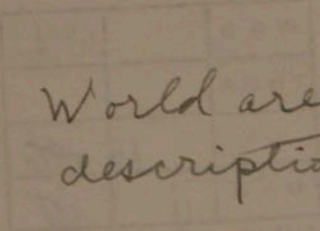 World are
descriptio